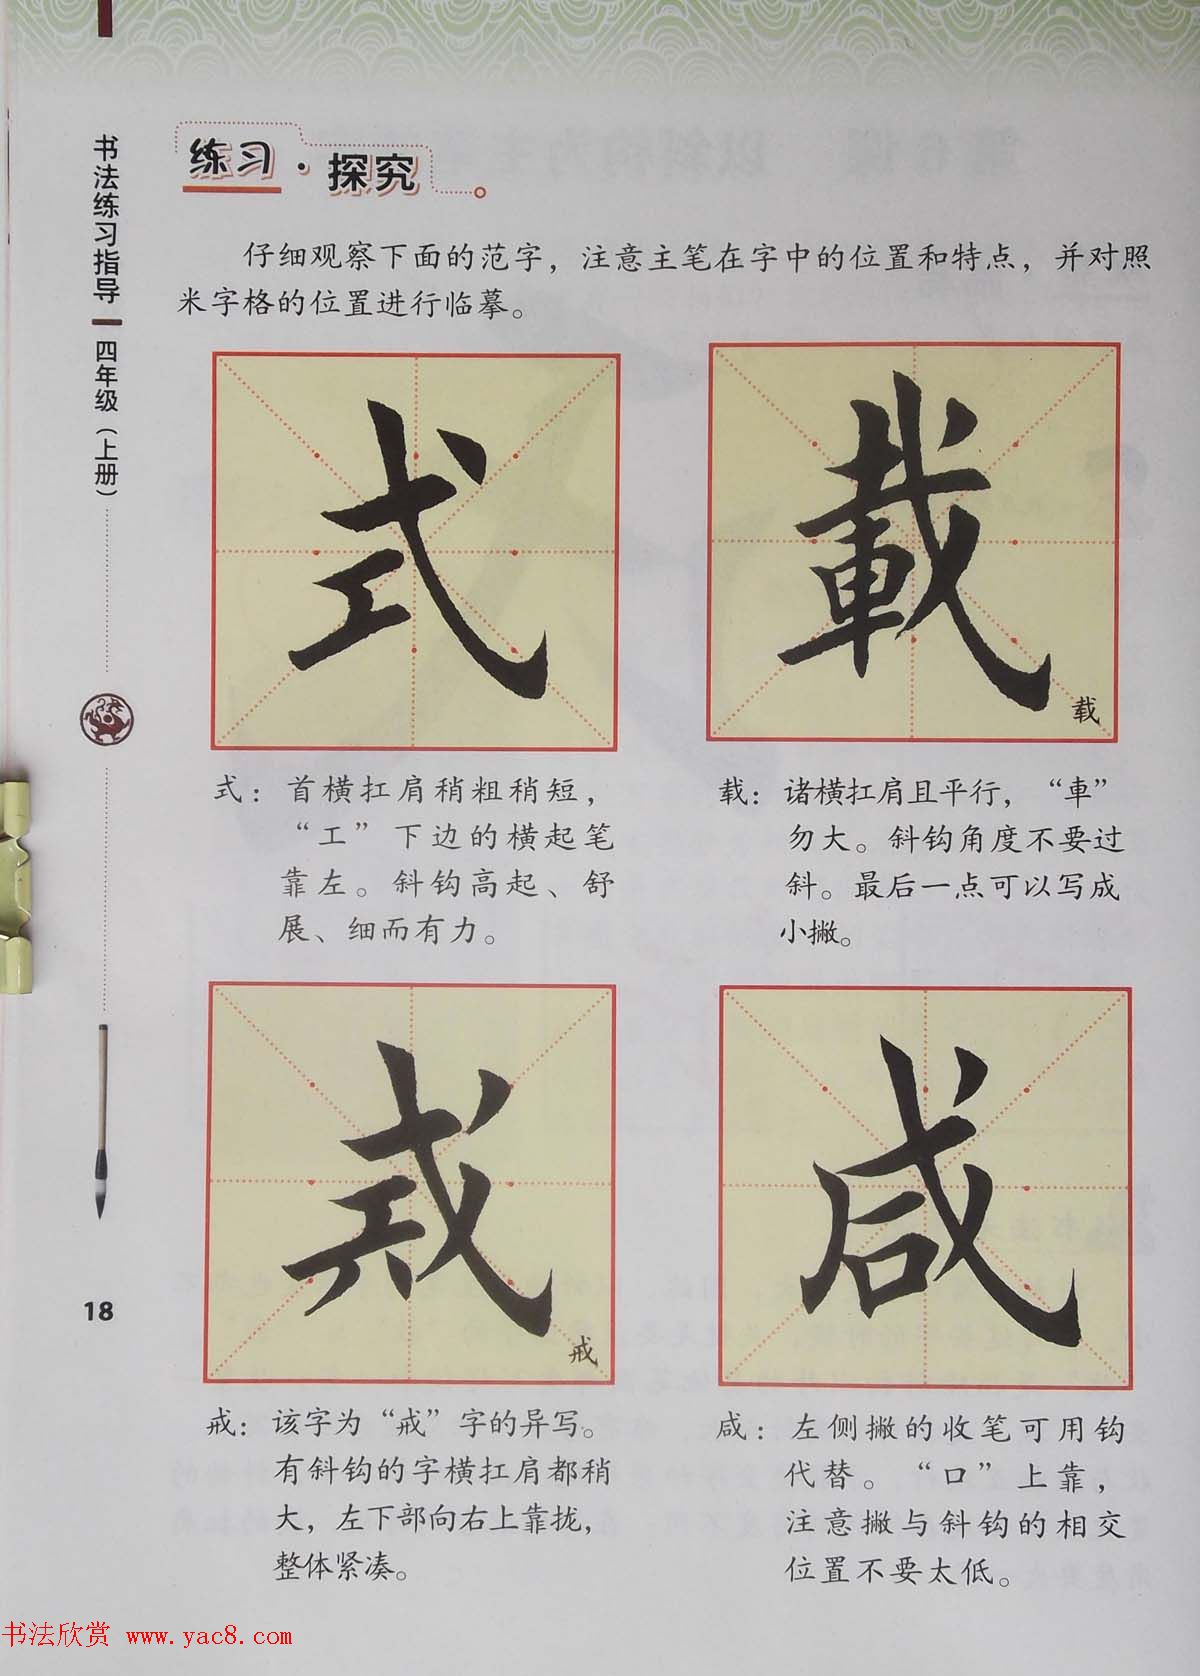 书法练习指导 四年级（上册）
练习·探究
仔细观察下面的范字，注意主笔在字中的位置和特点，并对照
米字格的位置进行临摹。
式
載
载
式：首横扛肩稍粗稍短，
“工”下边的横起笔
靠左。斜钩高起、舒
展、细而有力。
载：诸横扛肩且平行，“車”
勿大。斜钩角度不要过
斜。最后一点可以写成
小撇。
戒
戒
咸
戒：该字为“戒”字的异写。
有斜钩的字横扛肩都稍
大，左下部向右上靠拢，
整体紧凑。
咸：左侧撇的收笔可用钩
代替。“口”上靠，
注意撇与斜钩的相交
位置不要太低。
18
书法欣赏 www.yac8.com